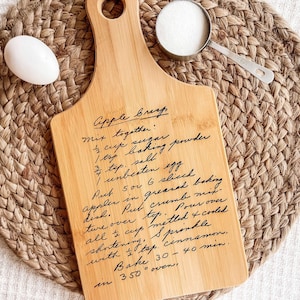 Apple Crisp
Mix together:
½ cup sugar
1 tsp baking powder
½ tsp salt
1 unbeaten egg
Put 5 or 6 sliced
apples in greased baking
dish. Put crumb mix-
ture over top. Pour over
all ⅓ cup melted & cooled
shortening. Sprinkle
with ½ tsp cinnamon.
Bake 30-40 min
in 350° oven.